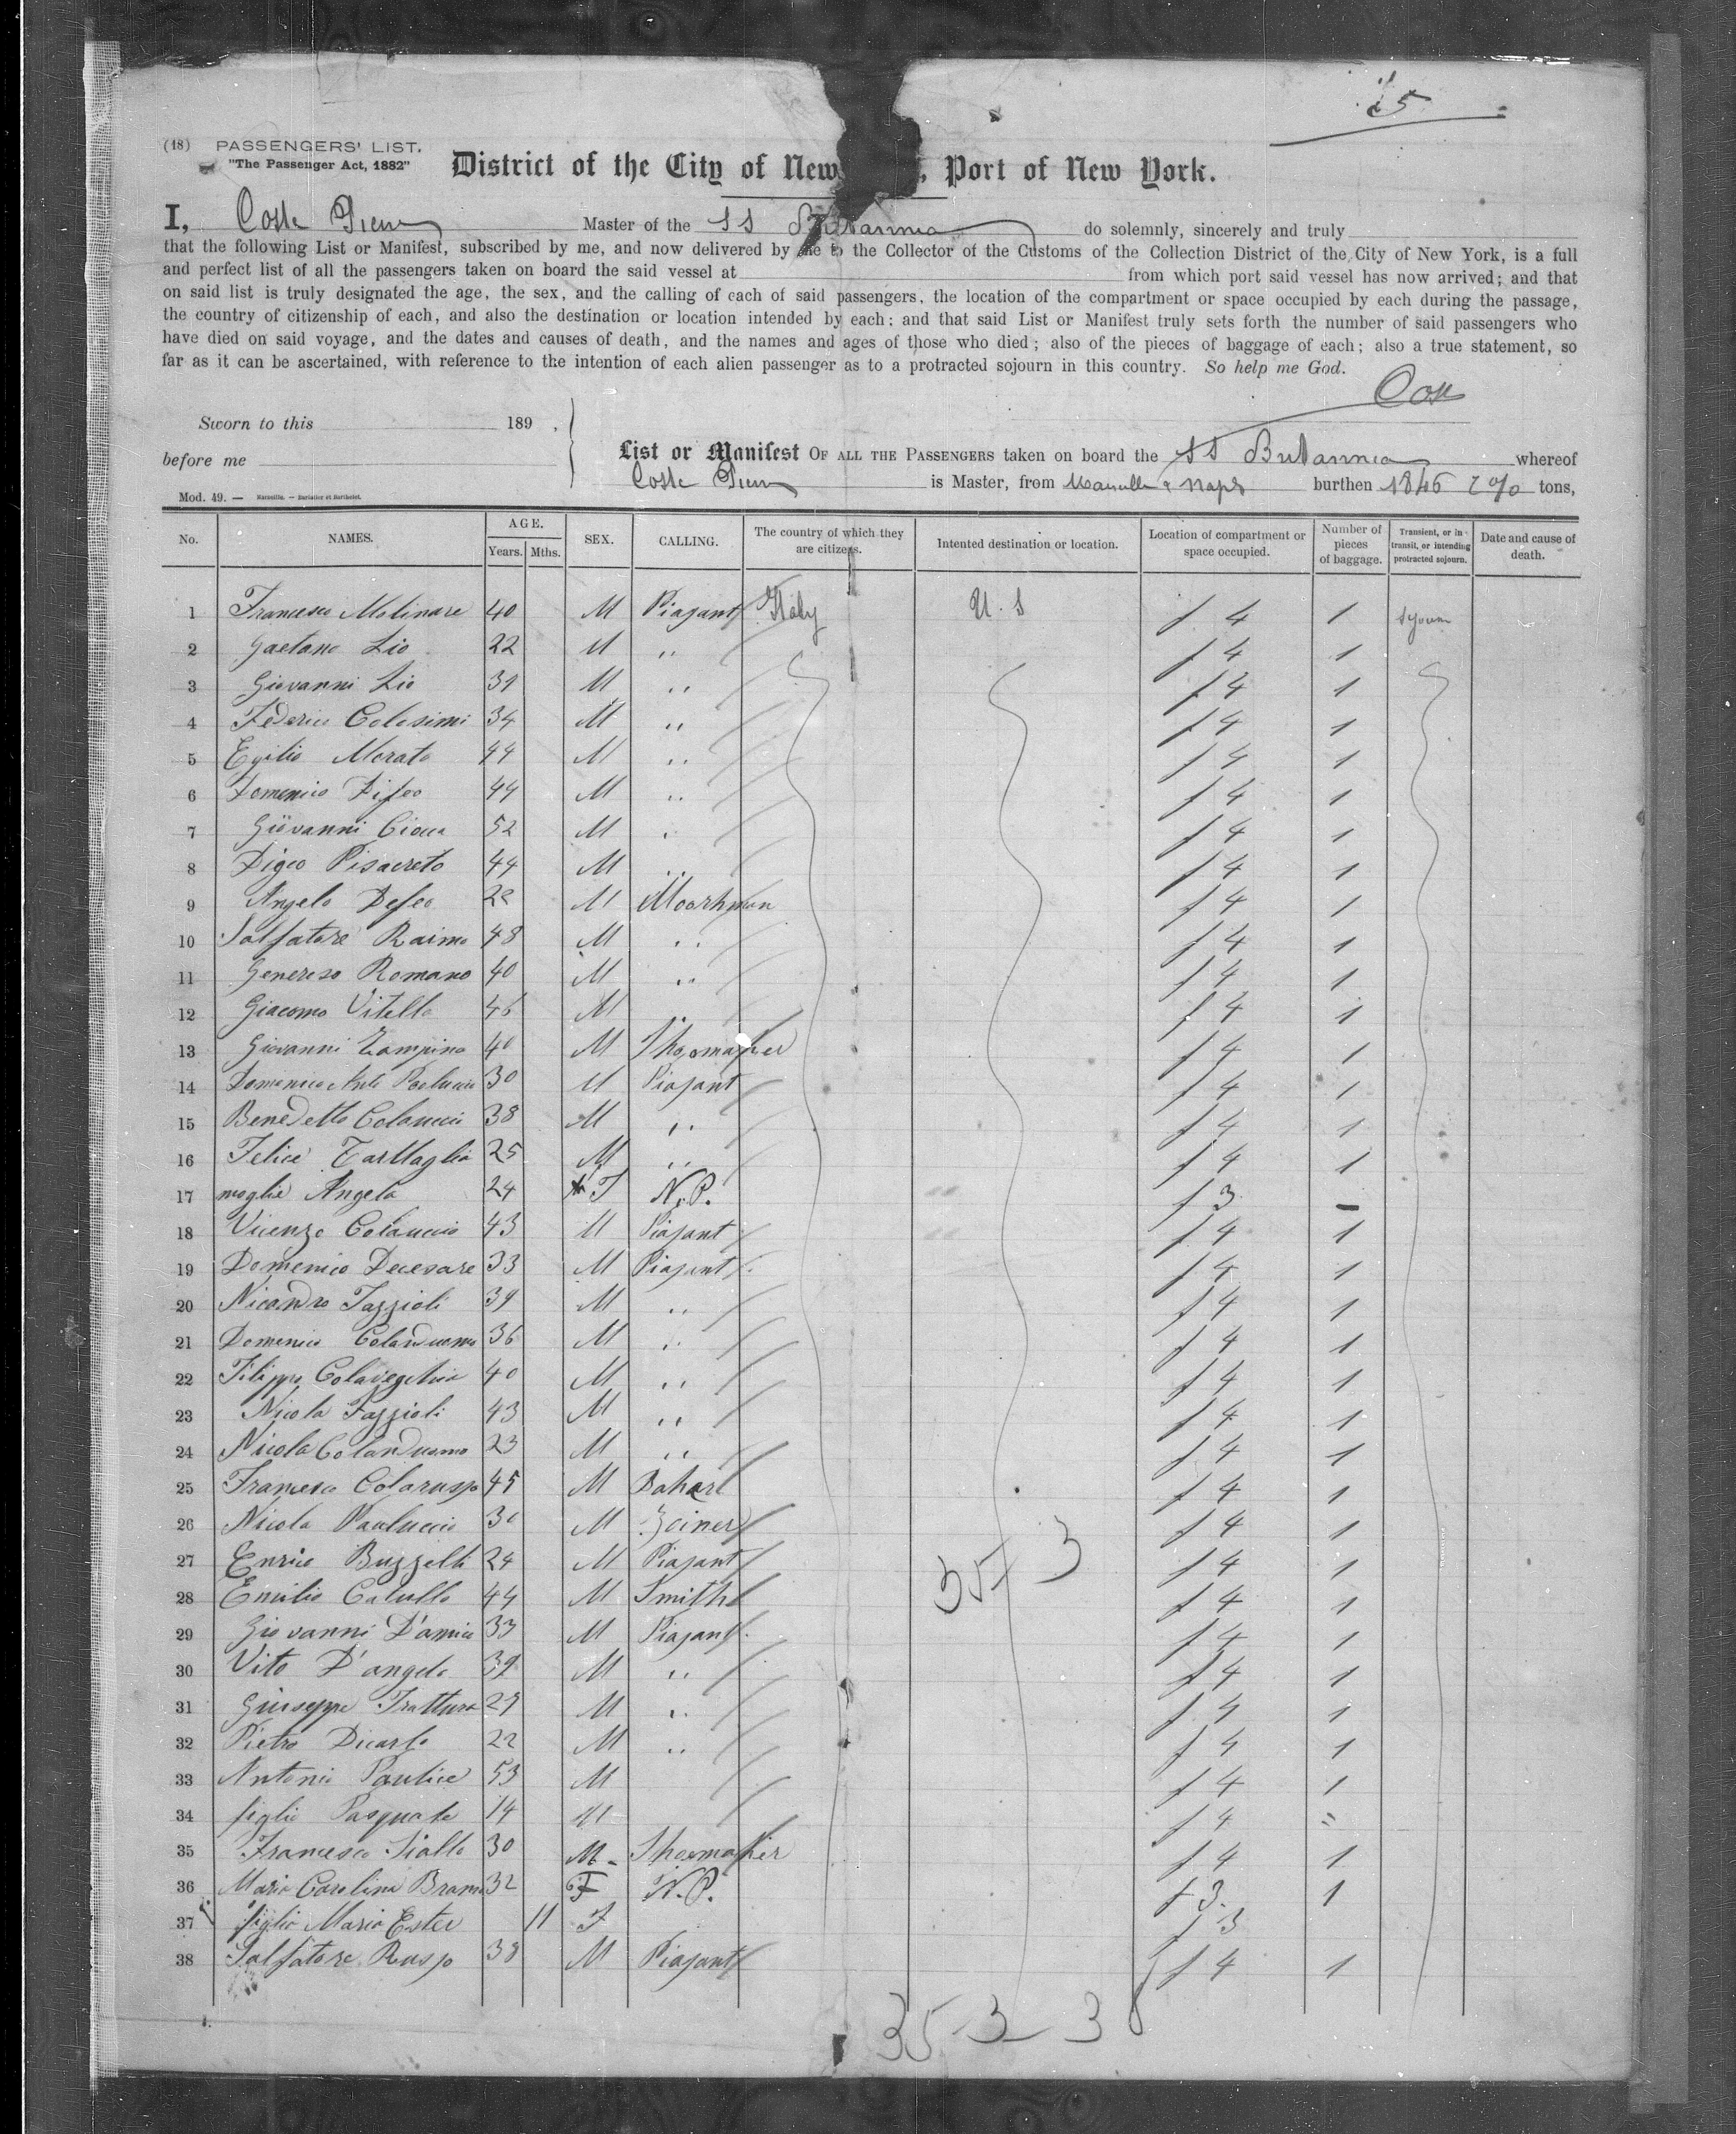 15
(18) PASSENGERS' LIST.
"The Passenger Act, 1882"
District of the City of New Port of New York.
I, Coste Pierre Master of the SS Britannia do solemnly, sincerely and truly
that the following List or Manifest, subscribed by me, and now delivered by me to the Collector of the Customs of the Collection District of the City of New York, is a full
and perfect list of all the passengers taken on board the said vessel at from which port said vessel has now arrived; and that
on said list is truly designated the age, the sex, and the calling of each of said passengers, the location of the compartment or space occupied by each during the passage,
the country of citizenship of each, and also the destination or location intended by each; and that said List or Manifest truly sets forth the number of said passengers who
have died on said voyage, and the dates and causes of death, and the names and ages of those who died; also of the pieces of baggage of each; also a true statement, so
far as it can be ascertained, with reference to the intention of each alien passenger as to a protracted sojourn in this country. So help me God.
Sworn to this 189 .
before me
List or Manifest OF ALL THE PASSENGERS taken on board the SS Britannia whereof
Coste Pierre is Master, from Marseille & Naples burthen 1846 tons,
Mod. 49. — Marseille. — Barlatier et Barthelet.
No. NAMES. AGE. Years. Mths. SEX. CALLING. The country of which they are citizens. Intented destination or location. Location of compartment or space occupied. Number of pieces of baggage. Transient, or in transit, or intending protracted sojourn. Date and cause of death.
1 Francesco Molinare 40 M Piasant Italy U.S f 4 1
2 Gaetano Lio 22 M ,, f 4 1
3 Giovanni Lio 31 M ,, f 4 1
4 Federico Colosimi 34 M ,, f 4 1
5 Egilio Morato 44 M ,, f 4 1
6 Domenico Difeo 44 M ,, f 4 1
7 Giovanni Ciocca 52 M , f 4 1
8 Digeo Pisacreto 44 M ,, f 4 1
9 Angelo Defeo M f 4 1
10 Salfatore Raimo 48 M ,, f 4 1
11 Genereso Romano 40 M ,, f 4 1
12 Giacomo Vitello 46 M ,, f 4 1
13 Giovanni Zampino 40 M Shoemaker f 4 1
14 Domenico Paoluccio 30 M Piasant f 4 1
15 Benedetto Colauccio 38 M ,, f 4 1
16 Felice Tarttaglia 25 M ,, f 4 1
17 moglie Angela 24 F N.P. f 3 –
18 Vicenzo Colauccio 43 M Piasant f 4 1
19 Domenico Decesare 33 M Piasant f 4 1
20 Nicandro Fazzioli 39 M ,, f 4 1
21 Domenico Colanduono 36 M ,, f 4 1
22 Filippo Colavegchia 40 M ,, f 4 1
23 Nicola Fazzioli 43 M ,, f 4 1
24 Nicola Colanduomo 23 M ,, f 4 1
25 Francesco Colarusso 45 M f 4 1
26 Nicola Pauluccio M Zoiner f 4 1
27 Enrico Buzzelli 24 M Piasant f 4 1
28 Emilio Catullo 44 M Smith f 4 1
29 Giovanni D'amico 33 M Piasant f 4 1
30 Vito D'angelo 39 M ,, f 4 1
31 Giuseppe Frattura 29 M ,, f 4 1
32 Pietro Dicarlo 22 M ,, f 4 1
33 Antonio Paulice 53 M f 4 1
34 figlio Pasquale 14 M f 4 "
35 Francesco Siallo 30 M Shoemaker f 4 1
36 Maria Carolina 32 F N.P. f 3 1
37 figlia Maria Ester 11 F f 3
38 Salfatore Russo 38 M Piasant f 4 1
35 3 3